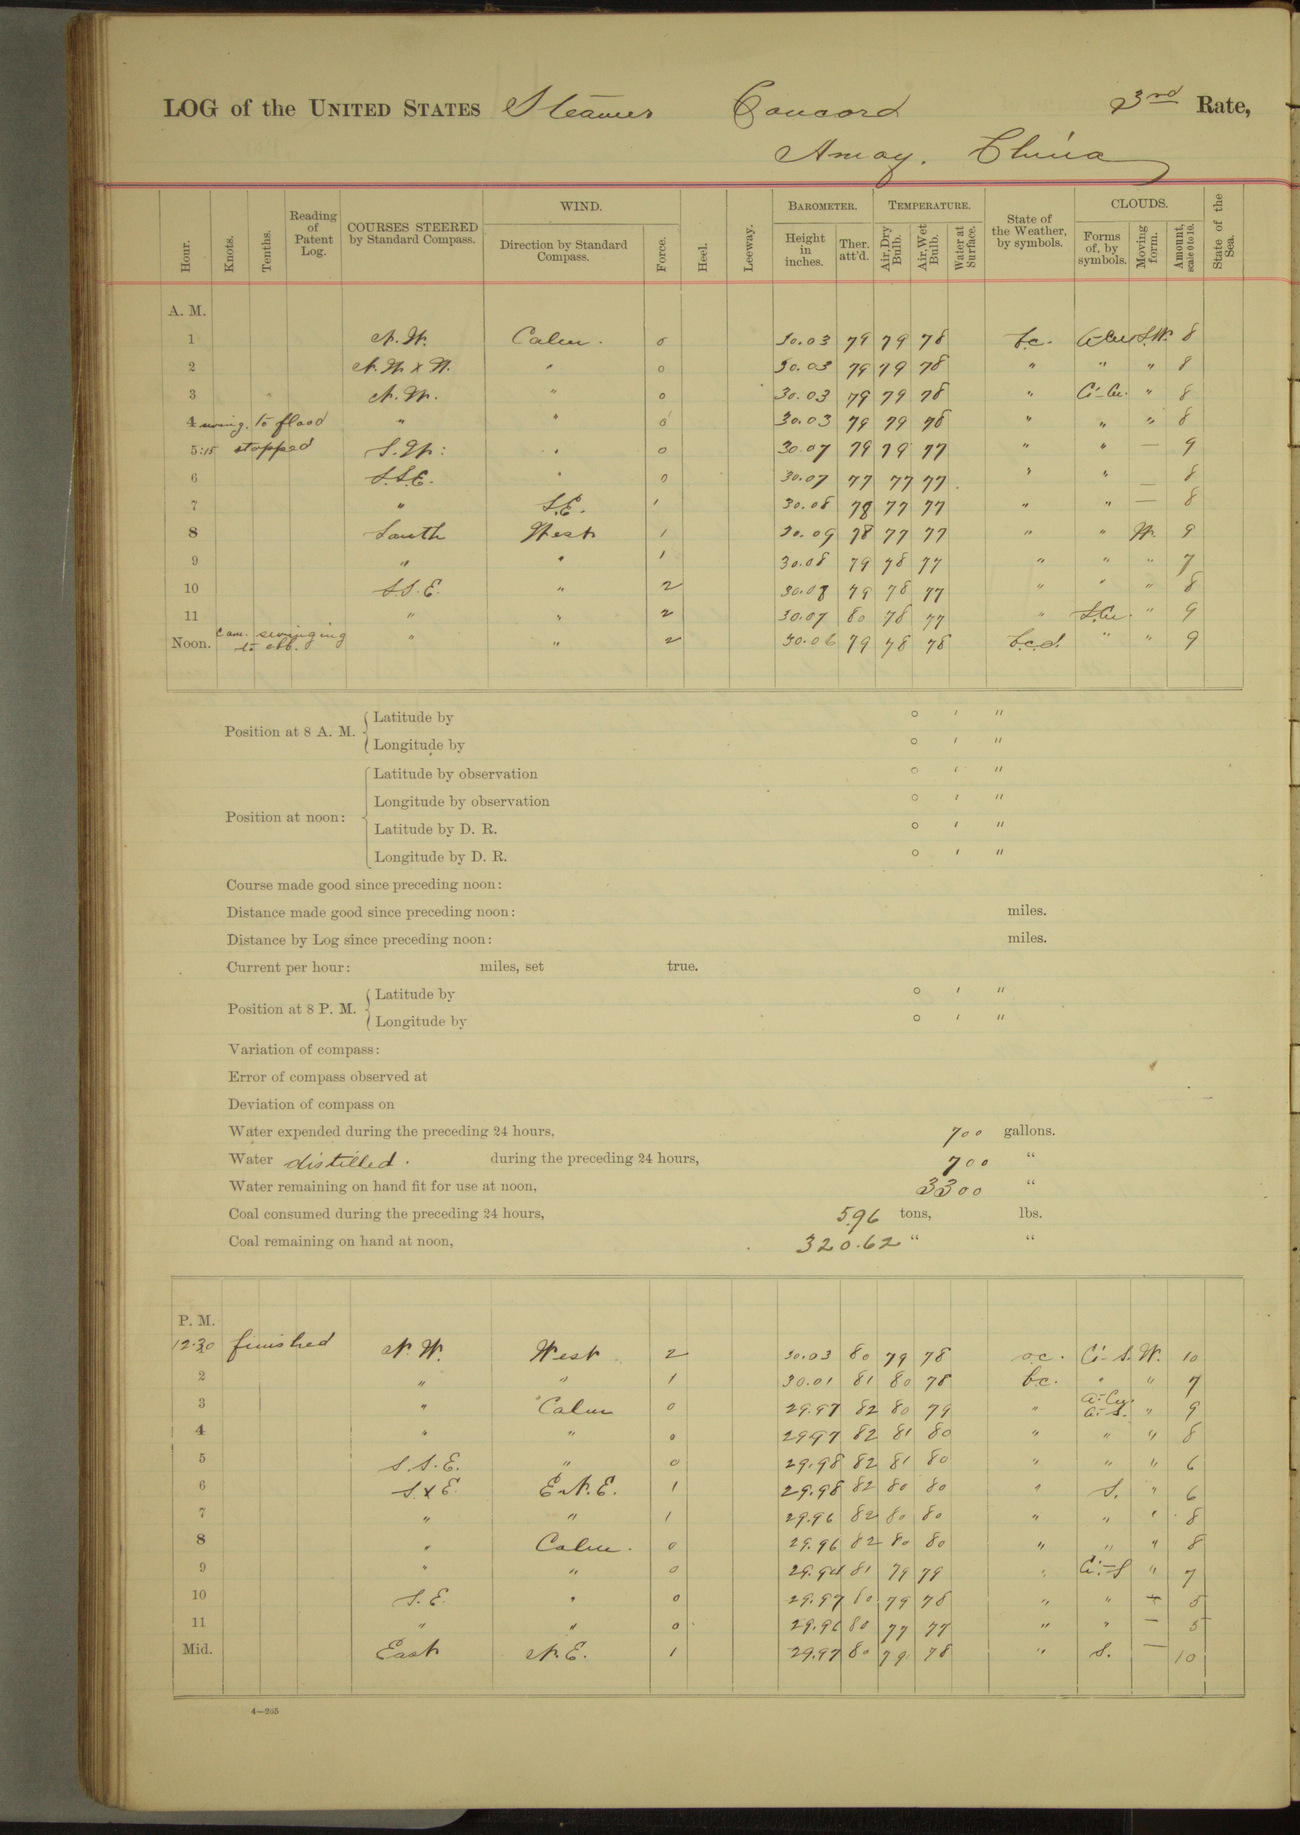 LOG of the UNITED STATES Steamer Concord 3rd Rate,
Amoy. China
Hour. Knots. Tenths. Reading of Patent Log. COURSES STEERED by Standard Compass. WIND. Direction by Standard Compass. Force. Heel. Leeway. BAROMETER. Height in inches. Ther. att'd. TEMPERATURE. Air, Dry Bulb. Air, Wet Bulb. Water at Surface. State of the Weather, by symbols. CLOUDS. Forms of, by symbols. Moving form. Amount, scale 0 to 10. State of the Sea.
A. M.
1 N.W. Calm. 0 30.03 79 79 78 b.c. S.W. 8
2 N.W x W. " 0 30.03 79 79 78 " " " 8
3 N.W. " 0 30.03 79 79 78 " Ci-Cu. " 8
4 swing. to flood " " 0 30.03 79 79 78 " " " 8
5:15 stopped S.W: " 0 30.07 79 79 77 " " — 9
6 S.S.E. " 0 30.07 77 77 77 " " — 8
7 " S.E. 1 30.08 78 77 77 " " — 8
8 South West 1 30.09 78 77 77 " " W. 9
9 " " 1 30.08 79 78 77 " " " 7
10 S.S.E. " 2 30.08 79 78 77 " " " 8
11 " " 2 30.07 80 78 77 " S.Cu. " 9
Noon. Com. swinging to ebb. " " 2 30.06 79 78 78 b.c.d. " " 9
Position at 8 A. M. { Latitude by ° ′ ″
Longitude by ° ′ ″
Position at noon: { Latitude by observation ° ′ ″
Longitude by observation ° ′ ″
Latitude by D. R. ° ′ ″
Longitude by D. R. ° ′ ″
Course made good since preceding noon:
Distance made good since preceding noon: miles.
Distance by Log since preceding noon: miles.
Current per hour: miles, set true.
Position at 8 P. M. { Latitude by ° ′ ″
Longitude by ° ′ ″
Variation of compass:
Error of compass observed at
Deviation of compass on
Water expended during the preceding 24 hours, 700 gallons.
Water distilled. during the preceding 24 hours, 700 "
Water remaining on hand fit for use at noon, 3300 "
Coal consumed during the preceding 24 hours, 5.96 tons, lbs.
Coal remaining on hand at noon, 320.62 " "
P. M.
12.30 finished N.W. West 2 30.03 80 79 78 o.c. Ci-S. W. 10
2 " " 1 30.01 81 80 78 b.c. " " 7
3 " Calm 0 29.97 82 80 79 " " 9
4 " " 0 29.97 82 81 80 " " " 8
5 S.S.E. " 0 29.98 82 81 80 " " " 6
6 S. x E. E.N.E. 1 29.98 82 80 80 " S. " 6
7 " " 1 29.96 82 80 80 " " " 8
8 " Calm. 0 29.96 82 80 80 " " " 8
9 " " 0 81 79 79 " Ci-S " 7
10 S.E. " 0 29.97 80 79 78 " " — 5
11 " " 0 29.96 80 77 77 " " — 5
Mid. East N.E. 1 29.97 80 79 78 " S. — 10
4—205